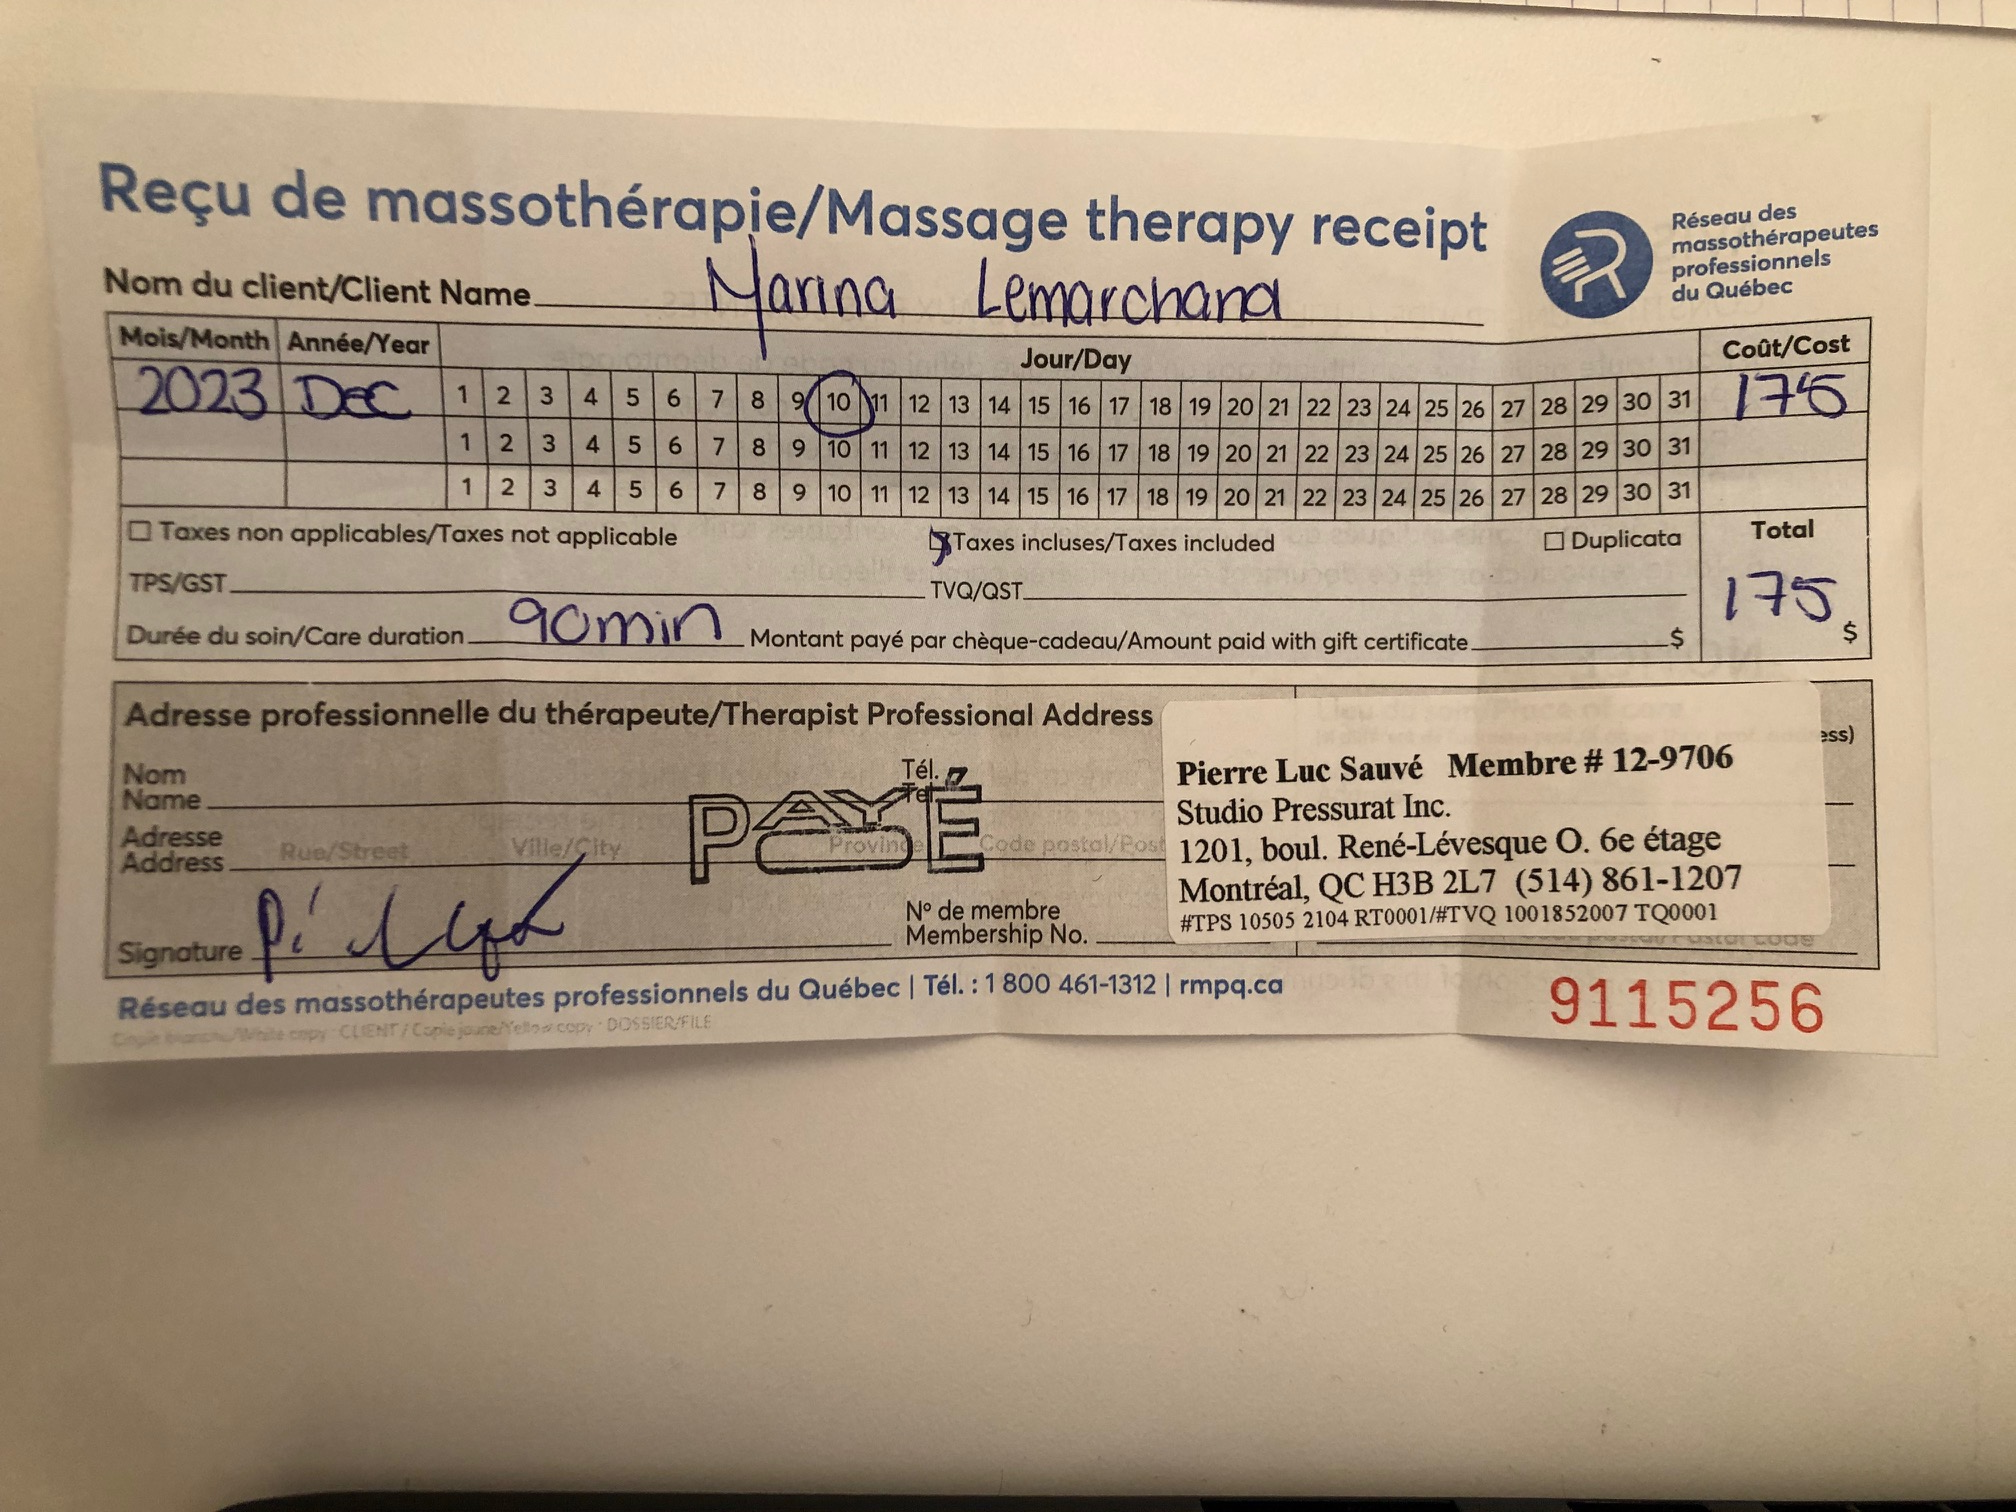 Reçu de massothérapie/Massage therapy receipt
Réseau des
massothérapeutes
professionnels
du Québec
Nom du client/Client Name Marina Lemarchand
Mois/Month Année/Year Jour/Day Coût/Cost
2023 Dec 1 2 3 4 5 6 7 8 9 10 11 12 13 14 15 16 17 18 19 20 21 22 23 24 25 26 27 28 29 30 31 175
1 2 3 4 5 6 7 8 9 10 11 12 13 14 15 16 17 18 19 20 21 22 23 24 25 26 27 28 29 30 31
1 2 3 4 5 6 7 8 9 10 11 12 13 14 15 16 17 18 19 20 21 22 23 24 25 26 27 28 29 30 31
Taxes non applicables/Taxes not applicable Taxes incluses/Taxes included Duplicata Total
TPS/GST TVQ/QST 175 $
Durée du soin/Care duration 90min Montant payé par chèque-cadeau/Amount paid with gift certificate $
Adresse professionnelle du thérapeute/Therapist Professional Address
ess)
Nom Tél.
Name Tel
PAYÉ
Adresse
Address Rue/Street Ville/City Province Code postal/Post
Signature
N° de membre
Membership No.
Pierre Luc Sauvé Membre # 12-9706
Studio Pressurat Inc.
1201, boul. René-Lévesque O. 6e étage
Montréal, QC H3B 2L7 (514) 861-1207
#TPS 10505 2104 RT0001/#TVQ 1001852007 TQ0001
Postal code
Réseau des massothérapeutes professionnels du Québec | Tél. : 1 800 461-1312 | rmpq.ca
9115256
Copie blanche/White copy : CLIENT / Copie jaune/Yellow copy : DOSSIER/FILE